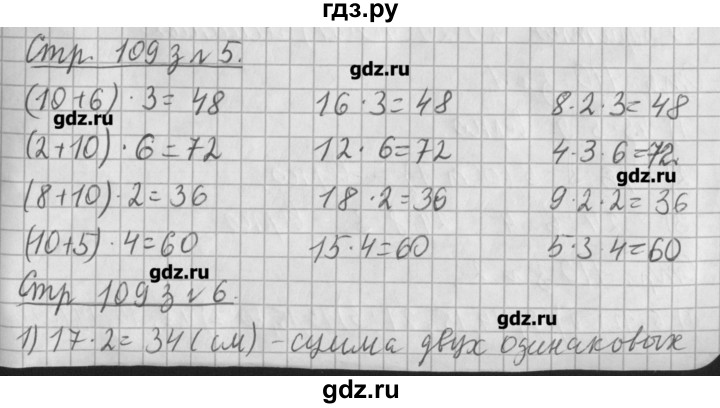 гдз.ру
Стр. 109 з № 5.
gdz.ru
(10+6) · 3 = 48 16 · 3 = 48 8 · 2 · 3 = 48
gdz.ru
(2+10) · 6 = 72 12 · 6 = 72 4 · 3 · 6 = 72
gdz.ru
(8+10) · 2 = 36 18 · 2 = 36 9 · 2 · 2 = 36
(10+5) · 4 = 60 15 · 4 = 60 5 · 3 · 4 = 60
gdz.ru
Стр 109 з № 6.
gdz.ru
1) 17 · 2 = 34 (см) - сумма двух одинаковых
gdz.ru